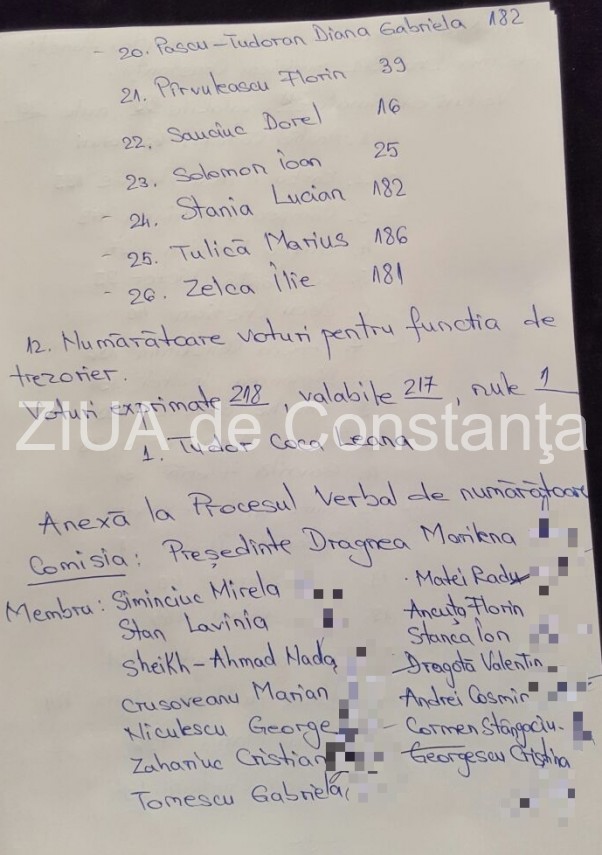 - 20. Pascu-Tudoran Diana Gabriela 182
21. Pîrvulescu Florin 39
22. Sauciuc Dorel 16
23. Solomon Ioan 25
- 24. Stania Lucian 182
- 25. Tulică Marius 186
- 26. Zelca Ilie 181
12. Numărătoare voturi pentru functia de
trezorier.
Voturi exprimate 218, valabile 217, nule 1
ZIUA de Constanţa
1. Tudor Coca Leana
Anexă la Procesul Verbal de numărătoare
Comisia: Președinte Dragnea Marilena
Membru: Siminciuc Mirela
Matei Radu
Stan Lavinia
Ancuța Florin
Stanca Ion
Sheikh-Ahmad Nada
Dragotă Valentin
Crusoveanu Marian
Andrei Cosmin
Niculescu George
Carmen Stângaciu-
Zahariuc Cristian
Georgescu Cristina
Tomescu Gabriela